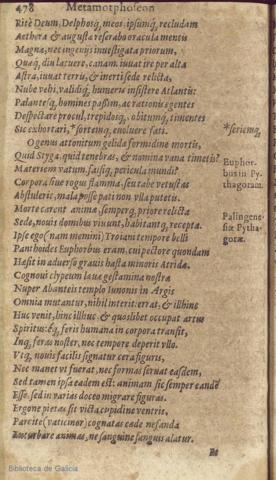 478 Metamorphoseon
Ritè Deum, Delphosq́; meos ipsumq́; recludam
Aethera & augustæ reserabo oracula mentis
Magna, nec ingenijs inuestigata priorum,
Quæq́; diu latuere, canam. iuuat ire per alta
Astra, iuuat terris, & inerti sede relicta,
Nube vehi, validiq́; humeris insistere Atlantis:
Palantesq́; homines passim, ac rationis egentes
Despectare procul, trepidosq́;, obitumq́; timentes
Sic exhortari, *sortemq́; euoluere fati. *seriemq́;
O genus attonitum gelidæ formidine mortis,
Quid Styga, quid tenebras, & nomina vana timetis?
Euphorbus in Pythagoram.
Materiem vatum, falsiq́; pericula mundi?
Corpora siue rogus flamma, seu tabe vetustas
Abstulerit, mala posse pati non vlla putetis.
Morte carent animæ, semperq́; priore relicta
Palingenesiæ Pythagoræ.
Sede, nouis domibus viuunt, habitantq́; receptæ.
Ipse ego (nam memini) Troiani tempore belli
Panthoides Euphorbus eram, cui pectore quondam
Hæsit in aduerso grauis hasta minoris Atridæ.
Cognoui clypeum læuæ gestamina nostræ
Nuper Abanteis templo Iunonis in Argis
Omnia mutantur, nihil interit. errat, & illhinc
Huc venit, hinc illhuc & quoslibet occupat artus
Spiritus: éq́; feris humana in corpora transit,
Inq́; feras noster, nec tempore deperit vllo.
Vtq́; nouis facilis signatur cera figuris,
Nec manet vt fuerat, nec formas seruat easdem,
Sed tamen ipsa eadem est: animam sic semper eandẽ
Esse, sed in varias doceo migrare figuras.
Ergo ne pietas sit victa cupidine ventris,
Parcite (vaticinor) cognatas cæde nefanda
Exturbare animas, ne sanguine sanguis alatur.
Et
Biblioteca de Galicia